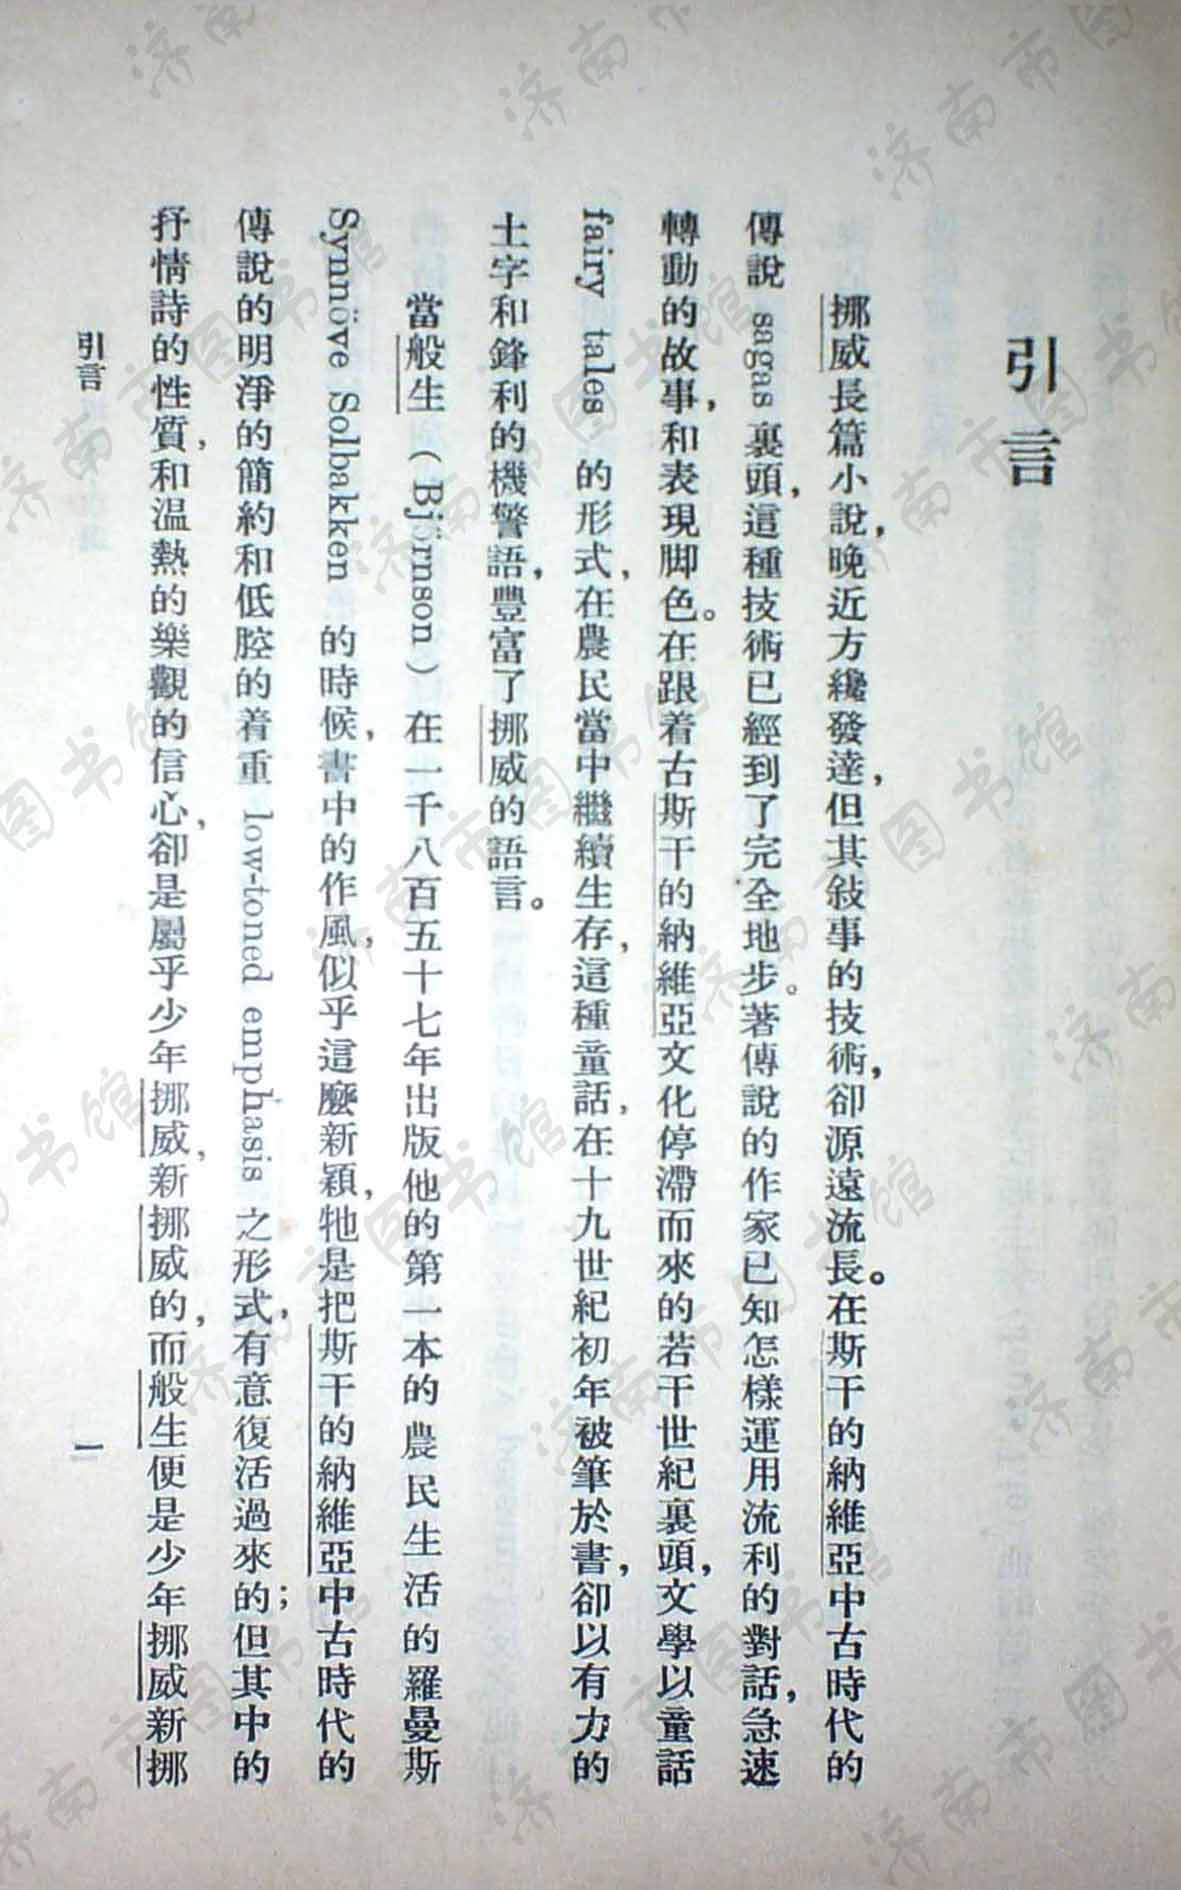 引言
挪威長篇小說，晚近方纔發達，但其敍事的技術，卻源遠流長。在斯干的納維亞中古時代的
傳說 sagas 裏頭，這種技術已經到了完全地步。著傳說的作家已知怎樣運用流利的對話，急速
轉動的故事，和表現脚色。在跟着古斯干的納維亞文化停滯而來的若干世紀裏頭，文學以童話
fairy tales 的形式，在農民當中繼續生存，這種童話，在十九世紀初年被筆於書，卻以有力的
土字和鋒利的機警語，豐富了挪威的語言。
當般生（Björnson）在一千八百五十七年出版他的第一本的農民生活的羅曼斯
Synnöve Solbakken 的時候，書中的作風，似乎這麼新穎，牠是把斯干的納維亞中古時代的
傳說的明淨的簡約和低腔的着重 low-toned emphasis 之形式，有意復活過來的；但其中的
抒情詩的性質，和温熱的樂觀的信心，卻是屬乎少年挪威，新挪威的，而般生便是少年挪威新挪
引言 一
济南市图书馆